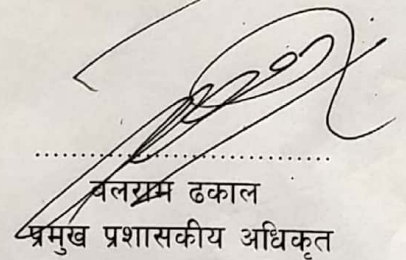 ..............................
वलराम ढकाल
प्रमुख प्रशासकीय अधिकृत